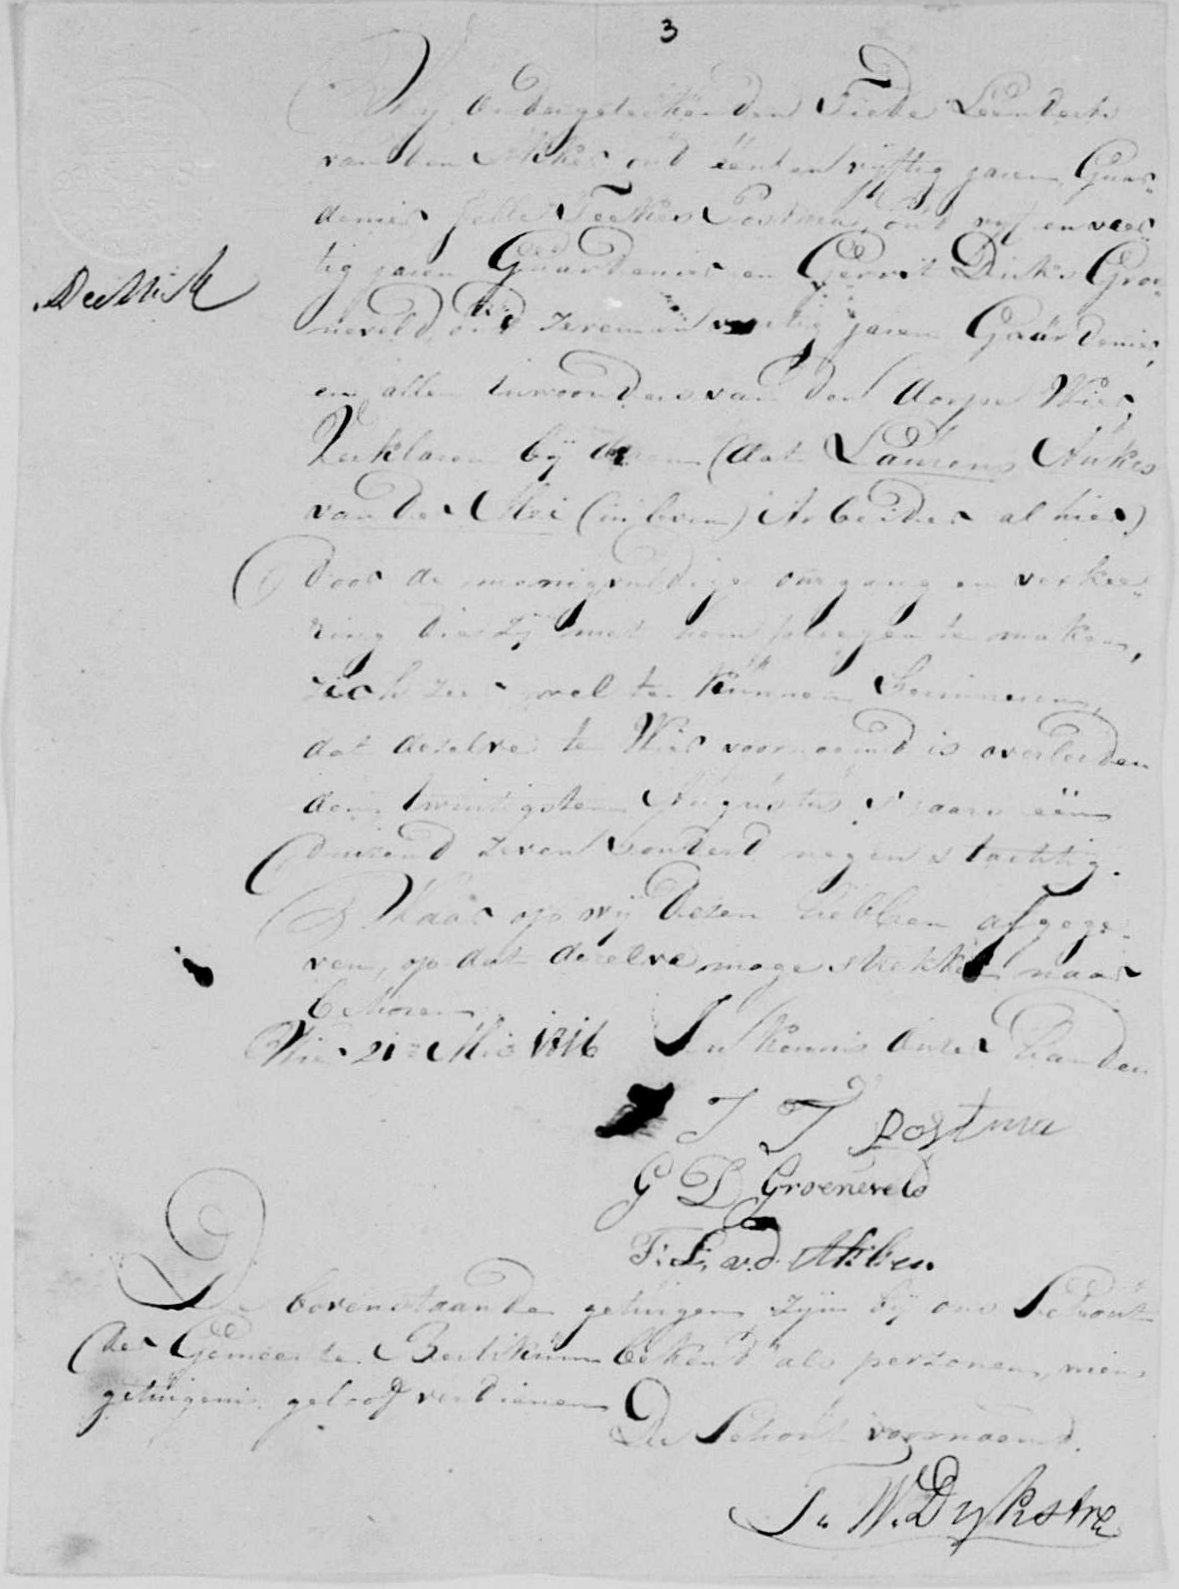 3
Wij Ondergeteekenden Fiede Leenderts
van den Akker oud één en vijftig jaren, Gaar-
denier Jelle Teekes Postma, oud vijf en veer-
tig jaren Gaardenier en Gerrit Dirks Groe-
neveld, oud zeven en veertig jaren Gaardenier,
en allen inwoonders van den dorpe Wier,
Verklaren bij dezen (dat Laurens Ankes
van der Mei (in leven) Arbeider alhier)
Door de menigvuldige omgang en verkee-
ring die zij met hem pleegen te maken,
zich zeer wel te kunnen herinneren,
dat dezelve te Wier voornoemd is overleden
den twintigsten Augustus 's jaars één
duizend zeven honderd negen & tachtig.
Waar op wij dezen hebben afgege-
ven, op dat dezelve moge strekken naar
behoren
Wier 21e Mei 1816 In kennis onzer handen
J T postma
G D Groeneveld
F. L. v. d. Akker.
De bovenstaande getuigen zijn bij ons Schout
der Gemeente Berlikum bekend als personen, wiens
getuigenis geloof verdienen
De Schout voornoemd.
W. Dykstra